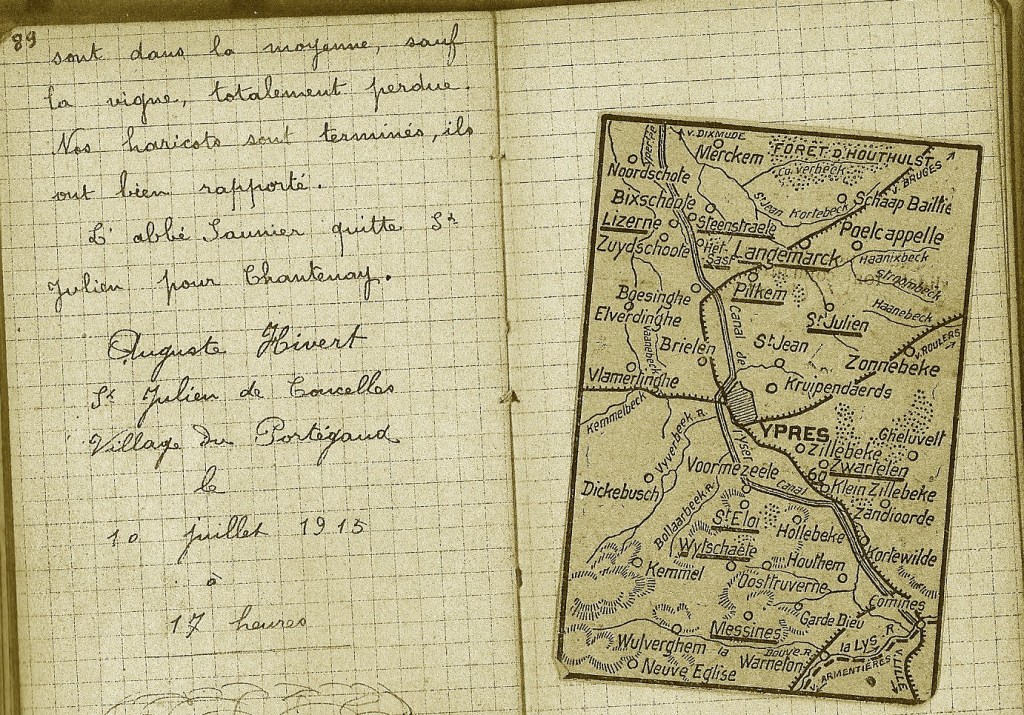 89
sont dans la moyenne, sauf
la vigne, totalement perdue.
Nos haricots sont terminés, ils
ont bien rapporté.
L'abbé Saunier quitte St
Julien pour Chantenay.
Auguste Hivert
St Julien de Concelles
Village du Portégaud
le
10 juillet 1915
à
17 heures
V. DIXMUDE
Ypertje
Merckem
FORET D'HOUTHULST
Co. Verbeck
V. BRUGES
Noordschote
St Jean
Kortebeck
Schaap Baillie
Bixschoote
Steenstraete
Lizerne
Poelcappelle
Zuydschoote
Het-Sast
Langemarck
Haanixbeck
Stroombeck
Pilkem
Haanebeck
Boesinghe
Elverdinghe
Canal de
St Julien
St Jean
Brielen
Zonnebeke
V. ROULERS
Vlamertinghe
Kruipendaerds
Kemmelbeck
YPRES
l'Yser
Vyverbeek. R.
Zillebeke
Gheluvelt
Voormezeele
Zwartelen
60
Klein Zillebeke
Canal
Dickebusch
Zandvoorde
Bollaarbeek. R.
St Eloi
Hollebeke
Wytschaete
Kortewilde
Houthem
Kemmel
Oosttruverne
Comines
Garde Dieu
Messines
la LYS R.
Wulverghem
la Douve. R.
Warneton
Neuve Eglise
V. ARMENTIÈRES
V. LILLE